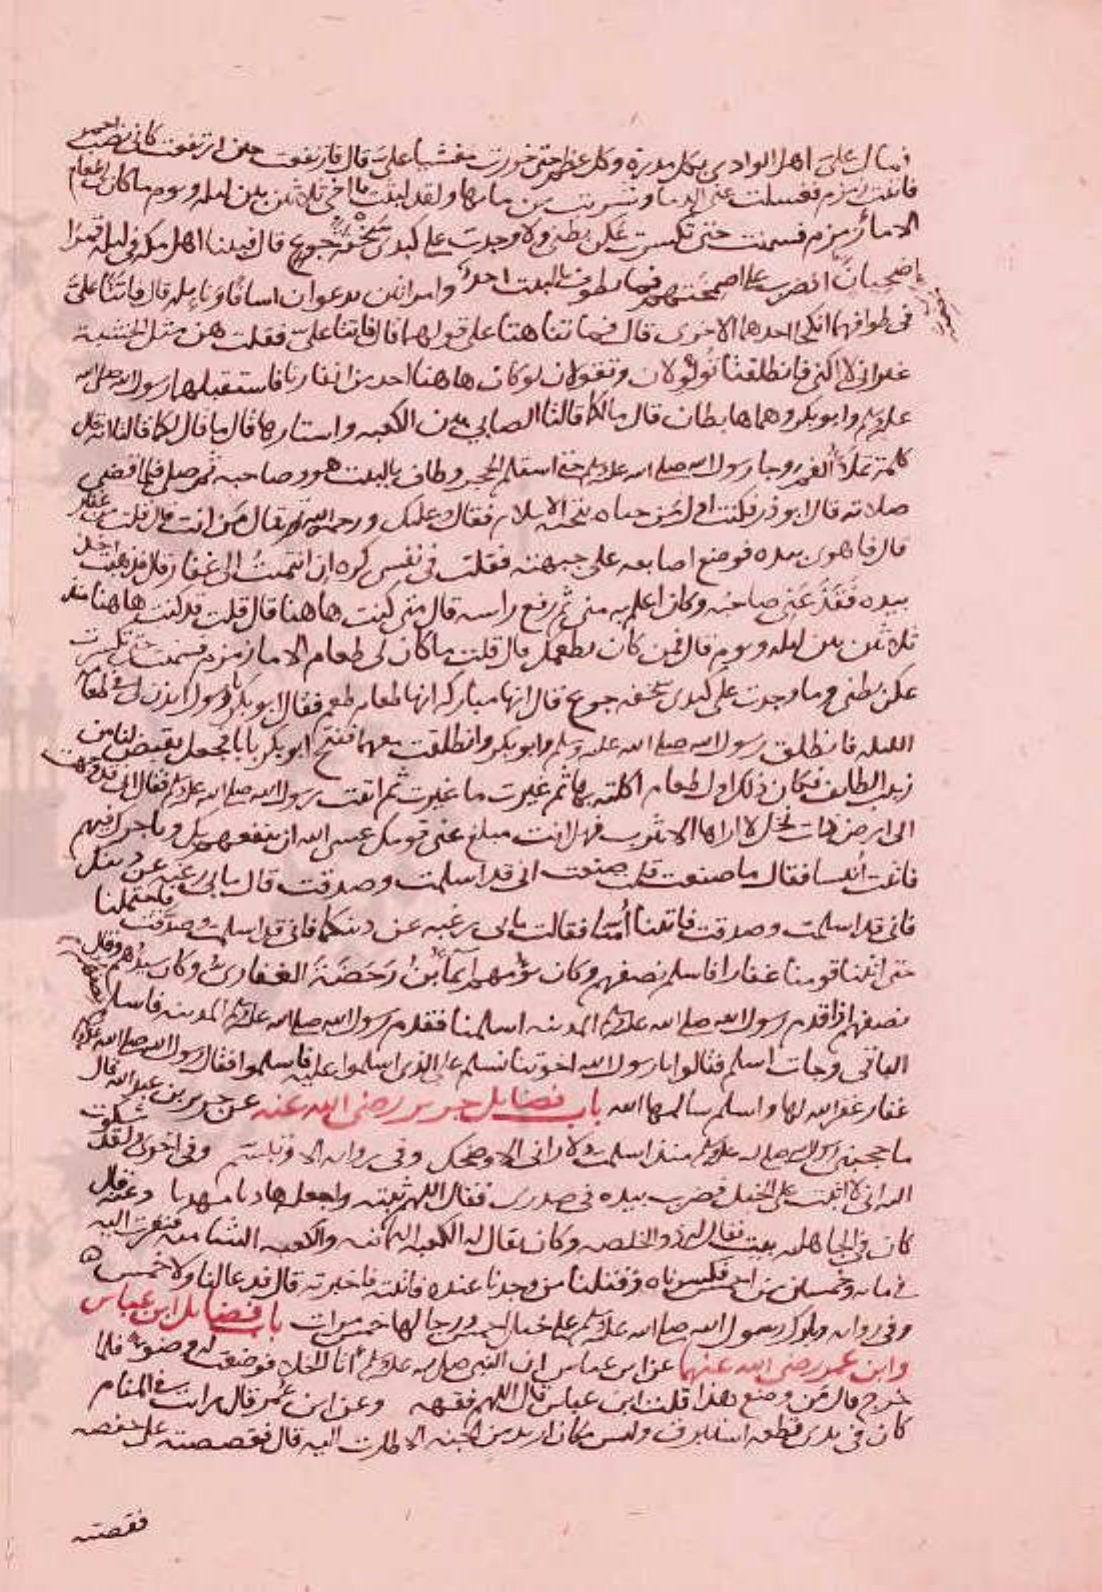 فمال على اهل الوادي بكل مدرة وكل عظم حتى خررت مغشيا على قال فارتفعت حين ارتفعت كاني نصب احمر
فاتيت زمزم فغسلت عني الدما وشربت من مايها ولقد لبثت يا ابن اخي ثلاثين بين ليله ويوم ما كان لي طعام
الا ما زمزم فسمنت حتى تكسرت عكن بطني ولا وجدت على كبدي سخفة جوع قال فبينا اهل مكة في ليله قمرا
اضحيان اذ ضرب على اصمختهم فما يطوف بالبيت احد وامراتين يدعوان اسافا ونايله قال فاتتا على
في طوافهما فقلت انكحا احدهما الاخرى قال فما تناهتا على قولهما قال فاتتا على فقلت هن مثل الخشبة
غير اني لا اكني فانطلقتا تولولان وتقولان لو كان هاهنا احد من انفارنا فاستقبلهما رسول الله صلى الله
عليه وسلم وابو بكر وهما هابطان قال ما لكما قالتا الصابي بين الكعبه واستارها قال ما قال لكما قالتا انه قال
كلمة تملأ الفم وجا رسول الله صلى الله عليه وسلم حتى استلم الحجر وطاف بالبيت هو وصاحبه ثم صلى فلما قضى
صلاته قال ابو ذر فكنت اول من حياه بتحية الاسلام فقال وعليك ورحمة الله ثم قال من انت قال قلت من غفار
قال فاهوى بيده فوضع اصابعه على جبهته فقلت في نفسي كره ان انتميت الى غفار قال فذهبت اخذ
بيده فقدعني صاحبه وكان اعلم به مني ثم رفع راسه قال متى كنت هاهنا قال قلت قد كنت هاهنا منذ
ثلاثين بين ليله ويوم قال فمن كان يطعمك قال قلت ما كان لي طعام الا ما زمزم فسمنت حتى تكسرت
عكن بطني وما وجدت على كبدي سخفه جوع قال انها مباركه انها طعام طعم فقال ابو بكر يا رسول الله ايذن لي في طعامه
الليله فانطلق رسول الله صلى الله عليه وسلم وابو بكر وانطلقت معهما ففتح ابو بكر بابا فجعل يقبض لنا من
زبيب الطايف فكان ذلك اول طعام اكلته بها ثم غبرت ما غبرت ثم اتيت رسول الله صلى الله عليه وسلم فقال اني قد وجهت
الى ارض ذات نخل لا اراها الا يثرب فهل انت مبلغ عني قومك عسى الله ان ينفعهم بك وياجرك فيهم
فاتيت أنيسا فقال ما صنعت قلت صنعت اني قد اسلمت وصدقت قال ما بي رغبه عن دينك
فاني قد اسلمت وصدقت فاتينا أمنا فقالت ما بي رغبه عن دينكما فاني قد اسلمت وصدقت فاحتملنا
حتى اتينا قومنا غفارا فاسلم نصفهم وكان يؤمهم ايما بن رحضة الغفاري وكان سيدهم وقال
نصفهم اذا قدم رسول الله صلى الله عليه وسلم المدينه اسلمنا فقدم رسول الله صلى الله عليه وسلم المدينه فاسلم
الباقي وجات اسلم فقالوا يا رسول الله اخوتنا نسلم على الذي اسلموا عليه فاسلموا فقال رسول الله صلى الله عليه وسلم
غفار غفر الله لها واسلم سالمها الله باب فضايل جرير رضي الله عنه عن جرير بن عبد الله قال
ما حجبني رسول الله صلى الله عليه وسلم منذ اسلمت ولا راني الا وضحك وفي روايه الا وتبسم وفي اخرى ولقد شكوت
اليه اني لا اثبت على الخيل فضرب بيده في صدري فقال اللهم ثبته واجعله هاديا مهديا وعنه قال
كان في الجاهليه بيت يقال له ذو الخلصه وكان يقال له الكعبه اليمانيه والكعبه الشاميه فنفرت اليه
في مايه وخمسين من احمس فكسرناه وقتلنا من وجدنا عنده فاتيته فاخبرته قال فدعا لنا ولاحمس
وفي روايه وبرك رسول الله صلى الله عليه وسلم على خيل احمس ورجالها خمس مرات باب فضايل ابن عباس
وابن عمر رضي الله عنهما عن ابن عباس ان النبي صلى الله عليه وسلم اتا الخلا فوضعت له وضوءا فلما
خرج قال من وضع هذا قلت ابن عباس قال اللهم فقهه وعن ابن عمر قال رايت في المنام
كان في يدي قطعه استبرق وليس مكان اريد من الجنه الا طارت اليه قال فقصصته على حفصه
فقصته